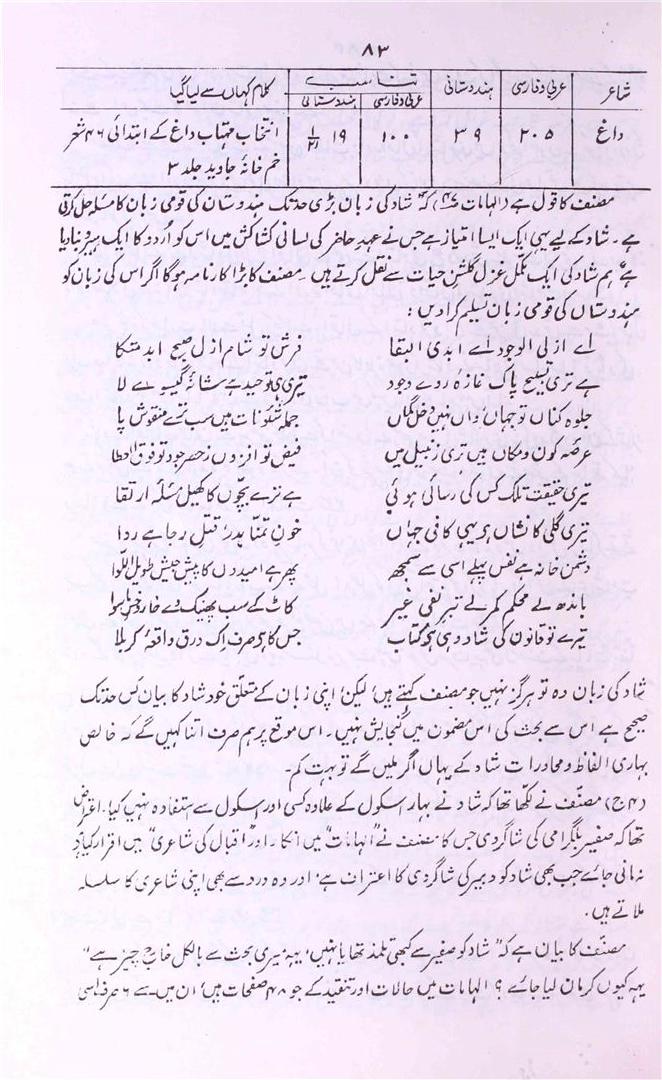 ۸۳
شاعر عربی وفارسی ہندوستانی تناسب کلام کہاں سے لیا گیا
عربی وفارسی ہندوستانی
داغ ۲۰۵ ۳۹ ۱۰۰ ۱۹ انتخاب مہتاب داغ کے ابتدائی ۴۶ شعر
خم خانۂ جاوید جلد ۳
مصنف کا قول ہے (الہامات) کہ "شاد کی زبان بڑی حد تک ہندوستان کی قومی زبان کا مسئلہ حل کرتی
ہے۔ شاد کے لیے یہی ایک ایسا امتیاز ہے جس نے عہد حاضر کی لسانی کشاکش میں اس کو اُردو کا ایک ہیرو بنا دیا
ہے" ہم شاد کی ایک مکمل غزل گلشن حیات سے نقل کرتے ہیں۔ مصنف کا بڑا کارنامہ ہوگا اگر اس کی زبان کو
ہندوستاں کی قومی زبان تسلیم کرا دیں:
اے ازلی الوجود اے ابدی البقا فرش تو شام ازل صبح ابد متکا
ہے تری تسبیح پاک غازۂ روے وجود تیری ہی توحید ہے شانۂ گیسوے لا
جلوہ کناں تو جہاں، واں نہیں دخل گماں جملہ شئونات ہیں سب ترے منقوش پا
عرصۂ کون و مکاں ہیں تری زنبیل میں فیض تو افزوں زحصر جود تو فوق العطا
تیری حقیقت تلک کس کی رسائی ہوئی ہے ترے بچّوں کا کھیل مسئلۂ ارتقا
تیری گلی کا نشاں ہر یہی کافی جہاں خون تمنّا بدر، قتل رجا ہے روا
دشمن خانہ ہے نفس پہلے اسی سے سمجھ پھر ہے امیدوں کا پیش جیش طویل اللّوا
باندھ لے محکم کمر لے تبر نفی غیر کاٹ کے سب پھینک دے خار و خس ماسوا
تیرے تو قانون کی شاد وہی ہے کتاب جس کا ہر صرف اِک ورق واقعۂ کربلا
شاد کی زبان وہ تو ہرگز نہیں جو مصنف کہتے ہیں، لیکن، اپنی زبان کے متعلق خود شاد کا بیان کس حد تک
صحیح ہے اس سے بحث کی اس مضمون میں گنجایش نہیں۔ اس موقع پر ہم صرف اتنا کہیں گے کہ خالص
بہاری الفاظ و محاورات شاد کے یہاں اگر ملیں گے تو بہت کم۔
(۴ج) مصنّف نے لکھا تھا کہ شاد نے بہار اسکول کے علاوہ کسی اور اسکول سے استفادہ نہیں کیا۔ اعتراض
تھا کہ صفیر بلگرامی کی شاگردی جس کا مصنف نے "الہامات" میں انکار اور "اقبال کی شاعری" میں اقرار کیا ہے
نہ مانی جائے جب بھی شاد کو دبیر کی شاگردی کا اعتراف ہے، اور وہ درد سے بھی اپنی شاعری کا سلسلہ
ملاتے ہیں۔
مصنف کا بیان ہے کہ "شاد کو صفیر سے کبھی تلمذ تھا یا نہیں، یہہ میری بحث سے بالکل خارج چیز ہے"
یہہ کیوں کر مان لیا جائے؟ الہامات میں حالات اور تنقید کے جو ۴۸ صفحات ہیں، ان میں سے ۶ صرف اسی